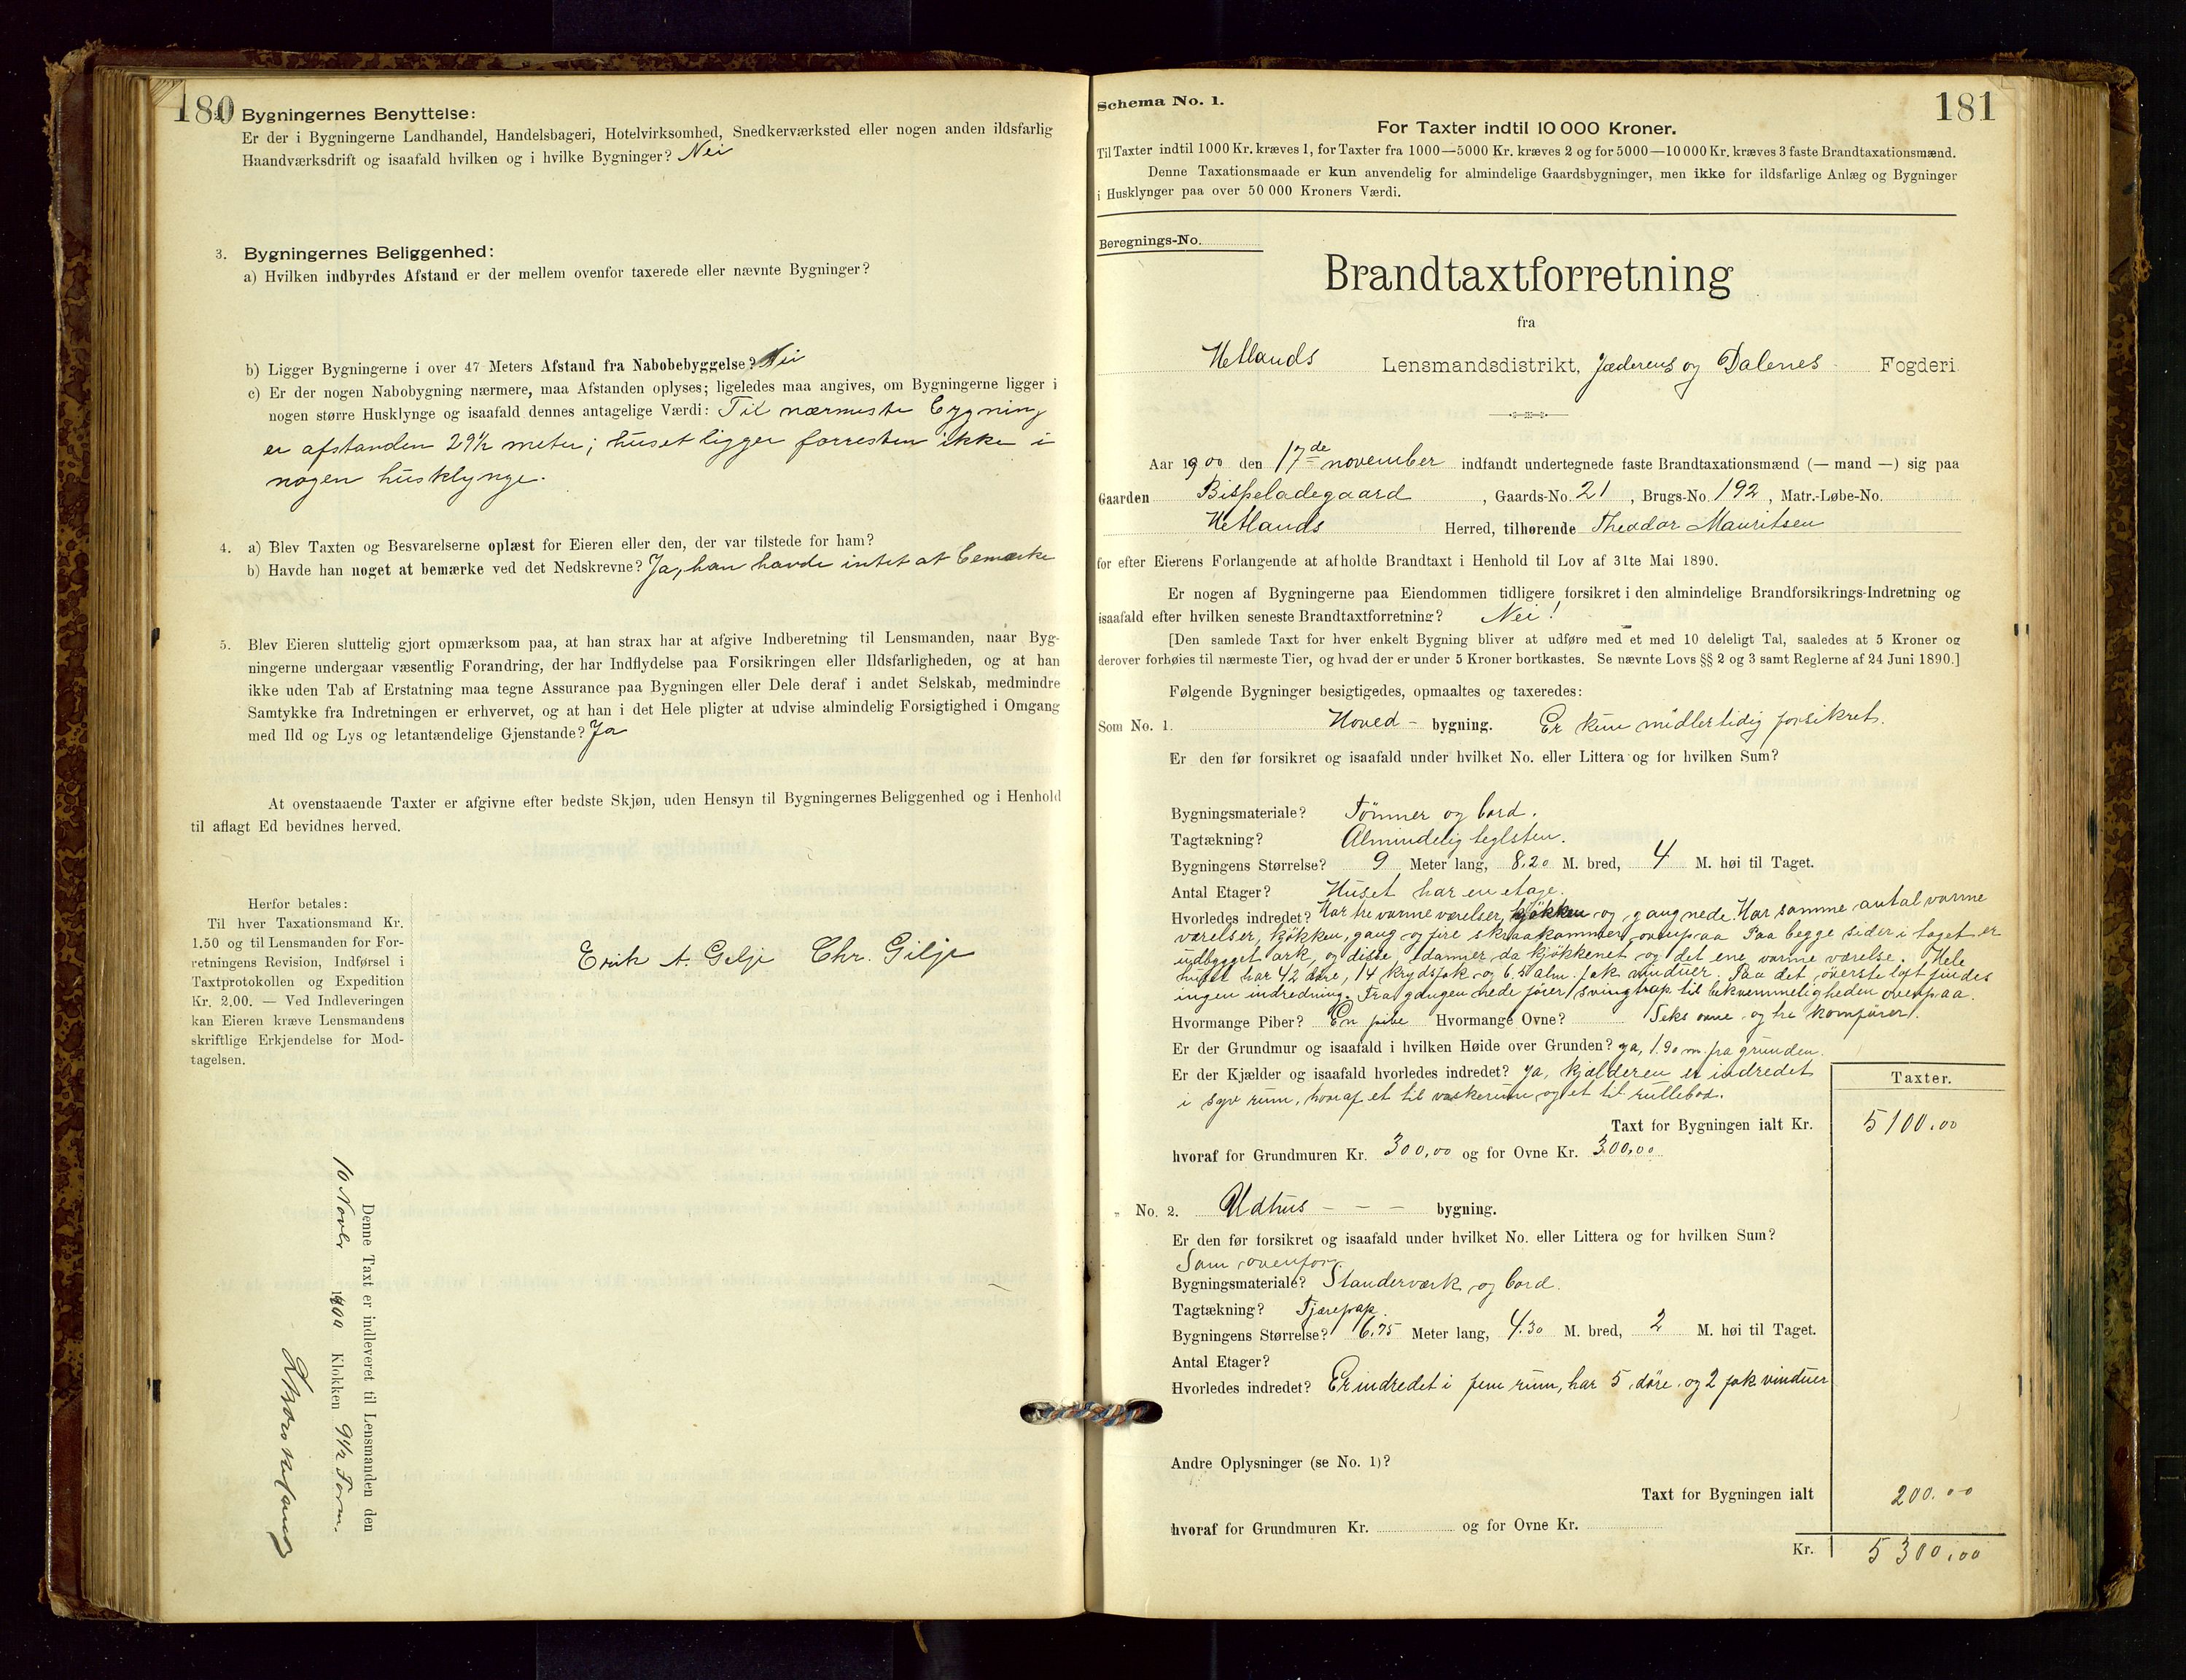 180
2. Bygningernes Benyttelse:
Er der i Bygningerne Landhandel, Handelsbageri, Hotelvirksomhed, Snedkerværksted eller nogen anden ildsfarlig
Haandværksdrift og isaafald hvilken og i hvilke Bygninger? Nei
3. Bygningernes Beliggenhed:
a) Hvilken indbyrdes Afstand er der mellem ovenfor taxerede eller nævnte Bygninger?
b) Ligger Bygningerne i over 47 Meters Afstand fra Nabobebyggelse? Nei
c) Er der nogen Nabobygning nærmere, maa Afstanden oplyses; ligeledes maa angives, om Bygningerne ligger i
nogen større Husklynge og isaafald dennes antagelige Værdi: Til nærmeste bygning
er afstanden 29½ meter; huset ligger forresten ikke i
nogen husklynge.
4. a) Blev Taxten og Besvarelserne oplæst for Eieren eller den, der var tilstede for ham?
b) Havde han noget at bemærke ved det Nedskrevne? Ja, han havde intet at bemærke
5. Blev Eieren sluttelig gjort opmærksom paa, at han strax har at afgive Indberetning til Lensmanden, naar Byg-
ningerne undergaar væsentlig Forandring, der har Indflydelse paa Forsikringen eller Ildsfarligheden, og at han
ikke uden Tab af Erstatning maa tegne Assurance paa Bygningen eller Dele deraf i andet Selskab, medmindre
Samtykke fra Indretningen er erhvervet, og at han i det Hele pligter at udvise almindelig Forsigtighed i Omgang
med Ild og Lys og letantændelige Gjenstande? Ja
At ovenstaaende Taxter er afgivne efter bedste Skjøn, uden Hensyn til Bygningernes Beliggenhed og i Henhold
til aflagt Ed bevidnes herved.
Herfor betales:
Til hver Taxationsmand Kr.
1.50 og til Lensmanden for For-
retningens Revision, Indførsel i
Taxtprotokollen og Expedition
Kr. 2.00. — Ved Indleveringen
kan Eieren kræve Lensmandens
skriftlige Erkjendelse for Mod-
tagelsen.
Erik A. Gilje Chr. Gilje
Denne Taxt er indleveret til Lensmanden den
Novbr 1900 Klokken 9½ Form.
Schema No. 1.
181
For Taxter indtil 10 000 Kroner.
Til Taxter indtil 1000 Kr. kræves 1, for Taxter fra 1000—5000 Kr. kræves 2 og for 5000—10 000 Kr. kræves 3 faste Brandtaxationsmænd.
Denne Taxationsmaade er kun anvendelig for almindelige Gaardsbygninger, men ikke for ildsfarlige Anlæg og Bygninger
i Husklynger paa over 50 000 Kroners Værdi.
Beregnings-No.
Brandtaxtforretning
fra
Hetlands Lensmandsdistrikt, Jæderens og Dalenes Fogderi
Aar 1900 den 17de november indfandt undertegnede faste Brandtaxationsmænd (— mand —) sig paa
Gaarden Bispeladegaard, Gaards-No. 21, Brugs-No. 192, Matr.-Løbe-No.
Hetlands Herred, tilhørende Theodor Mauritsen
for efter Eierens Forlangende at afholde Brandtaxt i Henhold til Lov af 31te Mai 1890.
Er nogen af Bygningerne paa Eiendommen tidligere forsikret i den almindelige Brandforsikrings-Indretning og
isaafald efter hvilken seneste Brandtaxtforretning? Nei!
[Den samlede Taxt for hver enkelt Bygning bliver at udføre med et med 10 deleligt Tal, saaledes at 5 Kroner og
derover forhøies til nærmeste Tier, og hvad der er under 5 Kroner bortkastes. Se nævnte Lovs §§ 2 og 3 samt Reglerne af 24 Juni 1890.]
Følgende Bygninger besigtigedes, opmaaltes og taxeredes:
Som No. 1. Hoved - bygning. Er kun midlertidig forsikret.
Er den før forsikret og isaafald under hvilket No. eller Littera og for hvilken Sum?
Bygningsmateriale? Tømmer og bord.
Tagtækning? Almindelig teglsten.
Bygningens Størrelse? 9 Meter lang, 8,20 M. bred, 4 M. høi til Taget.
Antal Etager? Huset har en etage.
Hvorledes indredet? Har tre varme værelser, kjøkken og gang nede. Har samme antal varme
værelser, kjøkken, gang og fire skraakammer ovenpaa Paa begge sider i taget er
udbygget ark, og disse danner da kjøkkenet og det ene varme værelse. Hele
huset har 42 døre, 14 krydsfak og 6 alm. fak vinduer. Paa det øverste loft findes
ingen indredning. Fra gangen nede fører svingtrap til bekvemmeligheden ovenpaa.
Hvormange Piber? En pibe Hvormange Ovne? Seks ovne og tre komfürer.
Er der Grundmur og isaafald i hvilken Høide over Grunden? ja, 1.90 m. fra grunden.
Er der Kjælder og isaafald hvorledes indredet? ja, kjælderen er indredet
i syv rum, hvoraf et til vaskerum og et til rullebod.
Taxter.
Taxt for Bygningen ialt Kr. 5100,00
hvoraf for Grundmuren Kr. 300,00 og for Ovne Kr. 300,00
" No. 2. Udhus - - - bygning.
Er den før forsikret og isaafald under hvilket No. eller Littera og for hvilken Sum?
Som ovenfor.
Bygningsmateriale? Standerværk og bord.
Tagtækning? Tjærepap.
Bygningens Størrelse? 6,75 Meter lang, 4.30 M. bred, 2 M. høi til Taget.
Antal Etager?
Hvorledes indredet? Er indredet i fem rum, har 5 døre og 2 fak vinduer
Andre Oplysninger (se No. 1)?
Taxt for Bygningen ialt 200.00
hvoraf for Grundmuren Kr. og for Ovne Kr.
Kr. 5300,00